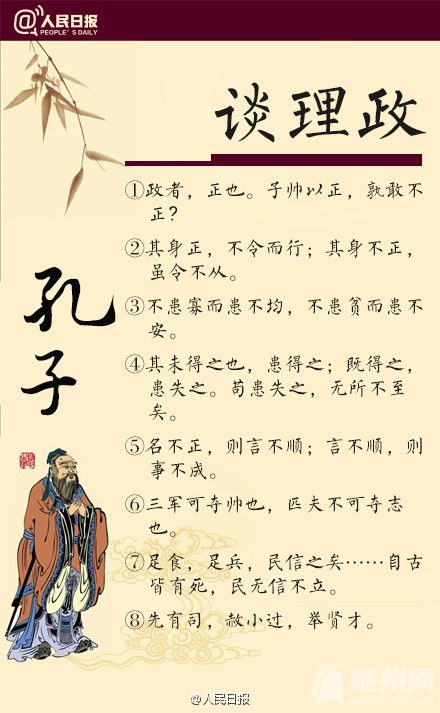 @人民日报
PEOPLE'S DAILY
谈理政
①政者，正也。子帅以正，孰敢不
正？
②其身正，不令而行；其身不正，
虽令不从。
③不患寡而患不均，不患贫而患不
安。
④其未得之也，患得之；既得之，
患失之。苟患失之，无所不至
矣。
⑤名不正，则言不顺；言不顺，则
事不成。
⑥三军可夺帅也，匹夫不可夺志
也。
⑦足食，足兵，民信之矣……自古
皆有死，民无信不立。
⑧先有司，赦小过，举贤才。
孔子
随州网
@人民日报